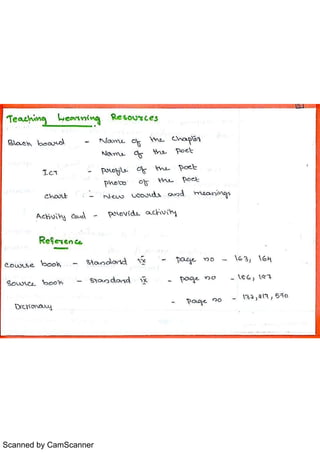 Teaching Learning Resources
Black board - Name of the chapter
Name of the poet
ICT - profile of the poet
photo of the poet
chart - New words and meanings
Activity card - provide activity
Reference
course book - Standard IX - page no - 163, 164
Source book - Standard IX - page no - 106, 107
Dictionary - page no - 132, 817, 590
Scanned by CamScanner